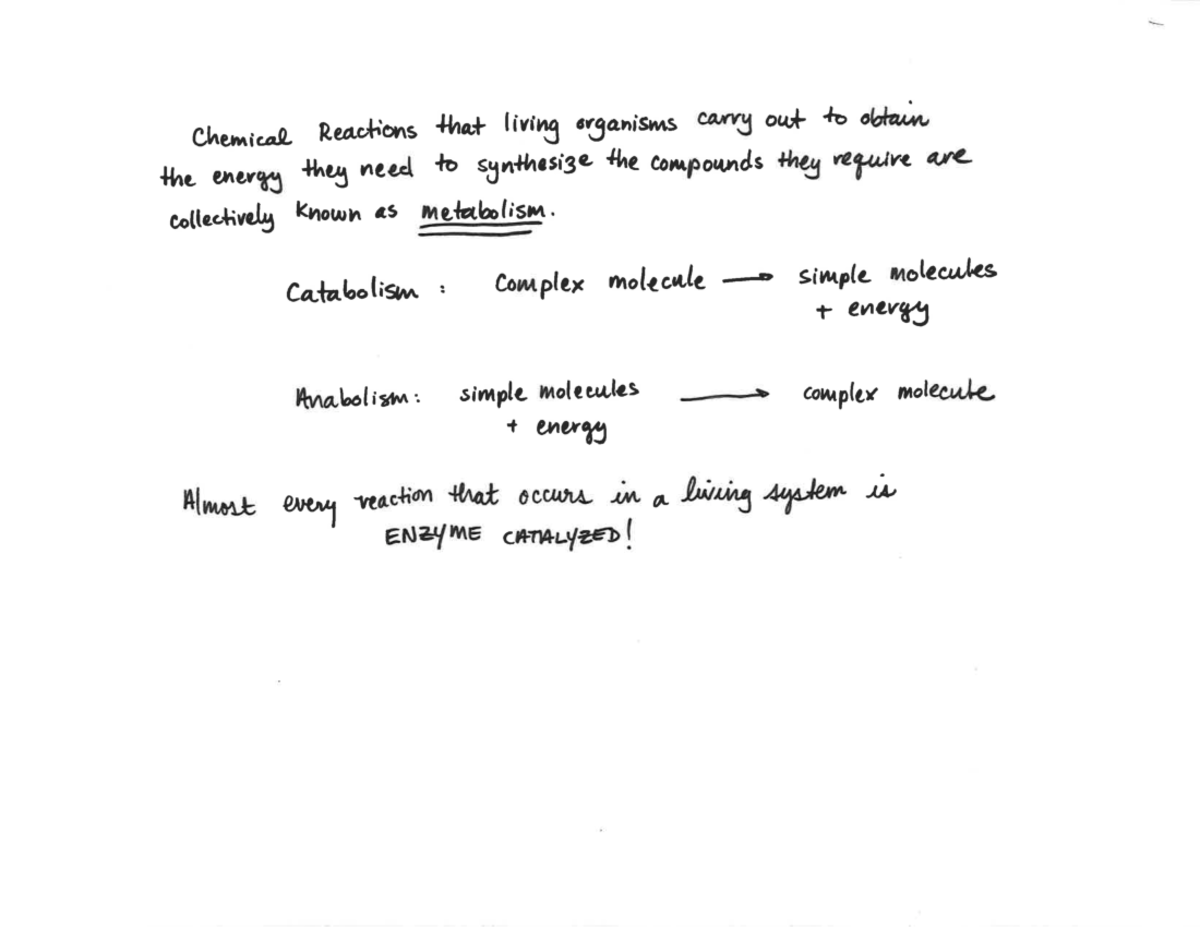 Chemical Reactions that living organisms carry out to obtain
the energy they need to synthesize the compounds they require are
collectively known as metabolism.
Catabolism : Complex molecule → simple molecules
+ energy
Anabolism: simple molecules → complex molecule
+ energy
Almost every reaction that occurs in a living system is
ENZYME CATALYZED!